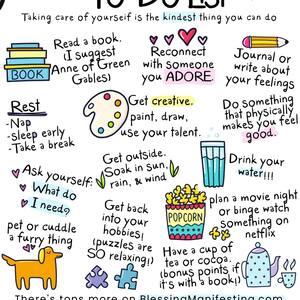 TO DO LIST
Taking care of yourself is the kindest thing you can do
Read a book.
(I suggest
Anne of Green
Gables)
BOOK
Reconnect
with someone
you ADORE.
Journal or
write about
your feelings
Rest
-Nap
-Sleep early
-Take a break
Get creative,
paint, draw,
use your talent.
Do something
that physically
makes you feel
good.
Ask yourself:
What do
I need?
Get outside.
Soak in sun,
rain, & wind
Drink your
water!!!
pet or cuddle
a furry thing
Get back
into your
hobbies!
(puzzles are
SO relaxing!)
POPCORN
plan a movie night
or binge watch
something on
netflix
Have a cup of
tea or cocoa.
(bonus points if
it's with a book!)
There's tons more on BlessingManifesting.com